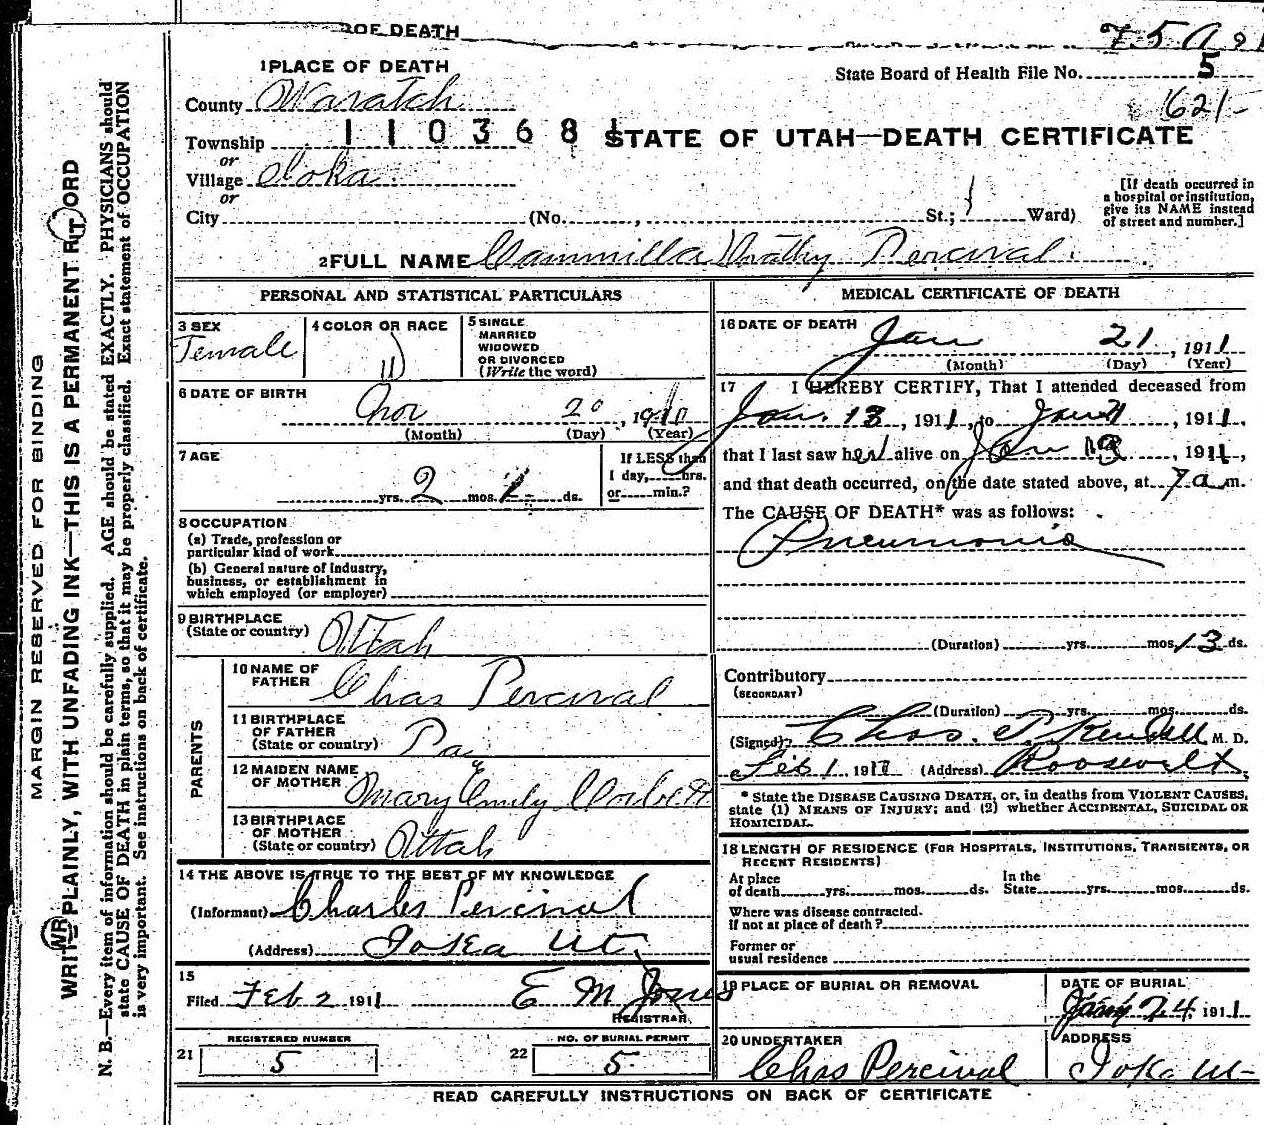 OF DEATH
7 5 a
1 PLACE OF DEATH
State Board of Health File No. 5
County Wasatch
621-
Township 110368
STATE OF UTAH—DEATH CERTIFICATE
or
Village Ioka
or
City (No. , St.; Ward)
[If death occurred in a hospital or institution, give its NAME instead of street and number.]
2 FULL NAME Cammilla Percival
PERSONAL AND STATISTICAL PARTICULARS
3 SEX Female
4 COLOR OR RACE W
5 SINGLE MARRIED WIDOWED OR DIVORCED (Write the word)
6 DATE OF BIRTH
Nov 20, 1910
(Month) (Day) (Year)
7 AGE
yrs. 2 mos. 1 ds.
If LESS than 1 day, hrs. or min.?
8 OCCUPATION
(a) Trade, profession or particular kind of work
(b) General nature of industry, business, or establishment in which employed (or employer)
9 BIRTHPLACE (State or country) Utah
PARENTS
10 NAME OF FATHER Chas Percival
11 BIRTHPLACE OF FATHER (State or country) Pa
12 MAIDEN NAME OF MOTHER Mary Emily Corbett
13 BIRTHPLACE OF MOTHER (State or country) Utah
14 THE ABOVE IS TRUE TO THE BEST OF MY KNOWLEDGE
(Informant) Charles Percival
(Address) Ioka Ut
15
Filed Feb 2 1911 E M Jones
REGISTRAR
REGISTERED NUMBER
21 5
NO. OF BURIAL PERMIT
22 5
MEDICAL CERTIFICATE OF DEATH
16 DATE OF DEATH
Jan 21, 1911
(Month) (Day) (Year)
17 I HEREBY CERTIFY, That I attended deceased from
Jan. 13, 1911, to Jan, 1911,
that I last saw her alive on Jan, 1911,
and that death occurred, on the date stated above, at 7 a m.
The CAUSE OF DEATH* was as follows:
Pneumonia
(Duration) yrs. mos. 13 ds.
Contributory
(SECONDARY)
(Duration) yrs. mos. ds.
(Signed) Chas. Kendell M. D.
Feb 1 1911 (Address) Roosevelt
* State the DISEASE CAUSING DEATH, or, in deaths from VIOLENT CAUSES, state (1) MEANS OF INJURY; and (2) whether ACCIDENTAL, SUICIDAL OR HOMICIDAL.
18 LENGTH OF RESIDENCE (FOR HOSPITALS, INSTITUTIONS, TRANSIENTS, OR RECENT RESIDENTS)
At place of death yrs. mos. ds. In the State yrs. mos. ds.
Where was disease contracted. If not at place of death?
Former or usual residence
19 PLACE OF BURIAL OR REMOVAL
DATE OF BURIAL
Jan 24 1911
20 UNDERTAKER
Chas Percival
ADDRESS
Ioka Ut
READ CAREFULLY INSTRUCTIONS ON BACK OF CERTIFICATE
MARGIN RESERVED FOR BINDING
WRITE PLAINLY, WITH UNFADING INK—THIS IS A PERMANENT RECORD
N. B.—Every item of information should be carefully supplied. AGE should be stated EXACTLY. PHYSICIANS should
state CAUSE OF DEATH in plain terms, so that it may be properly classified. Exact statement of OCCUPATION
is very important. See instructions on back of certificate.